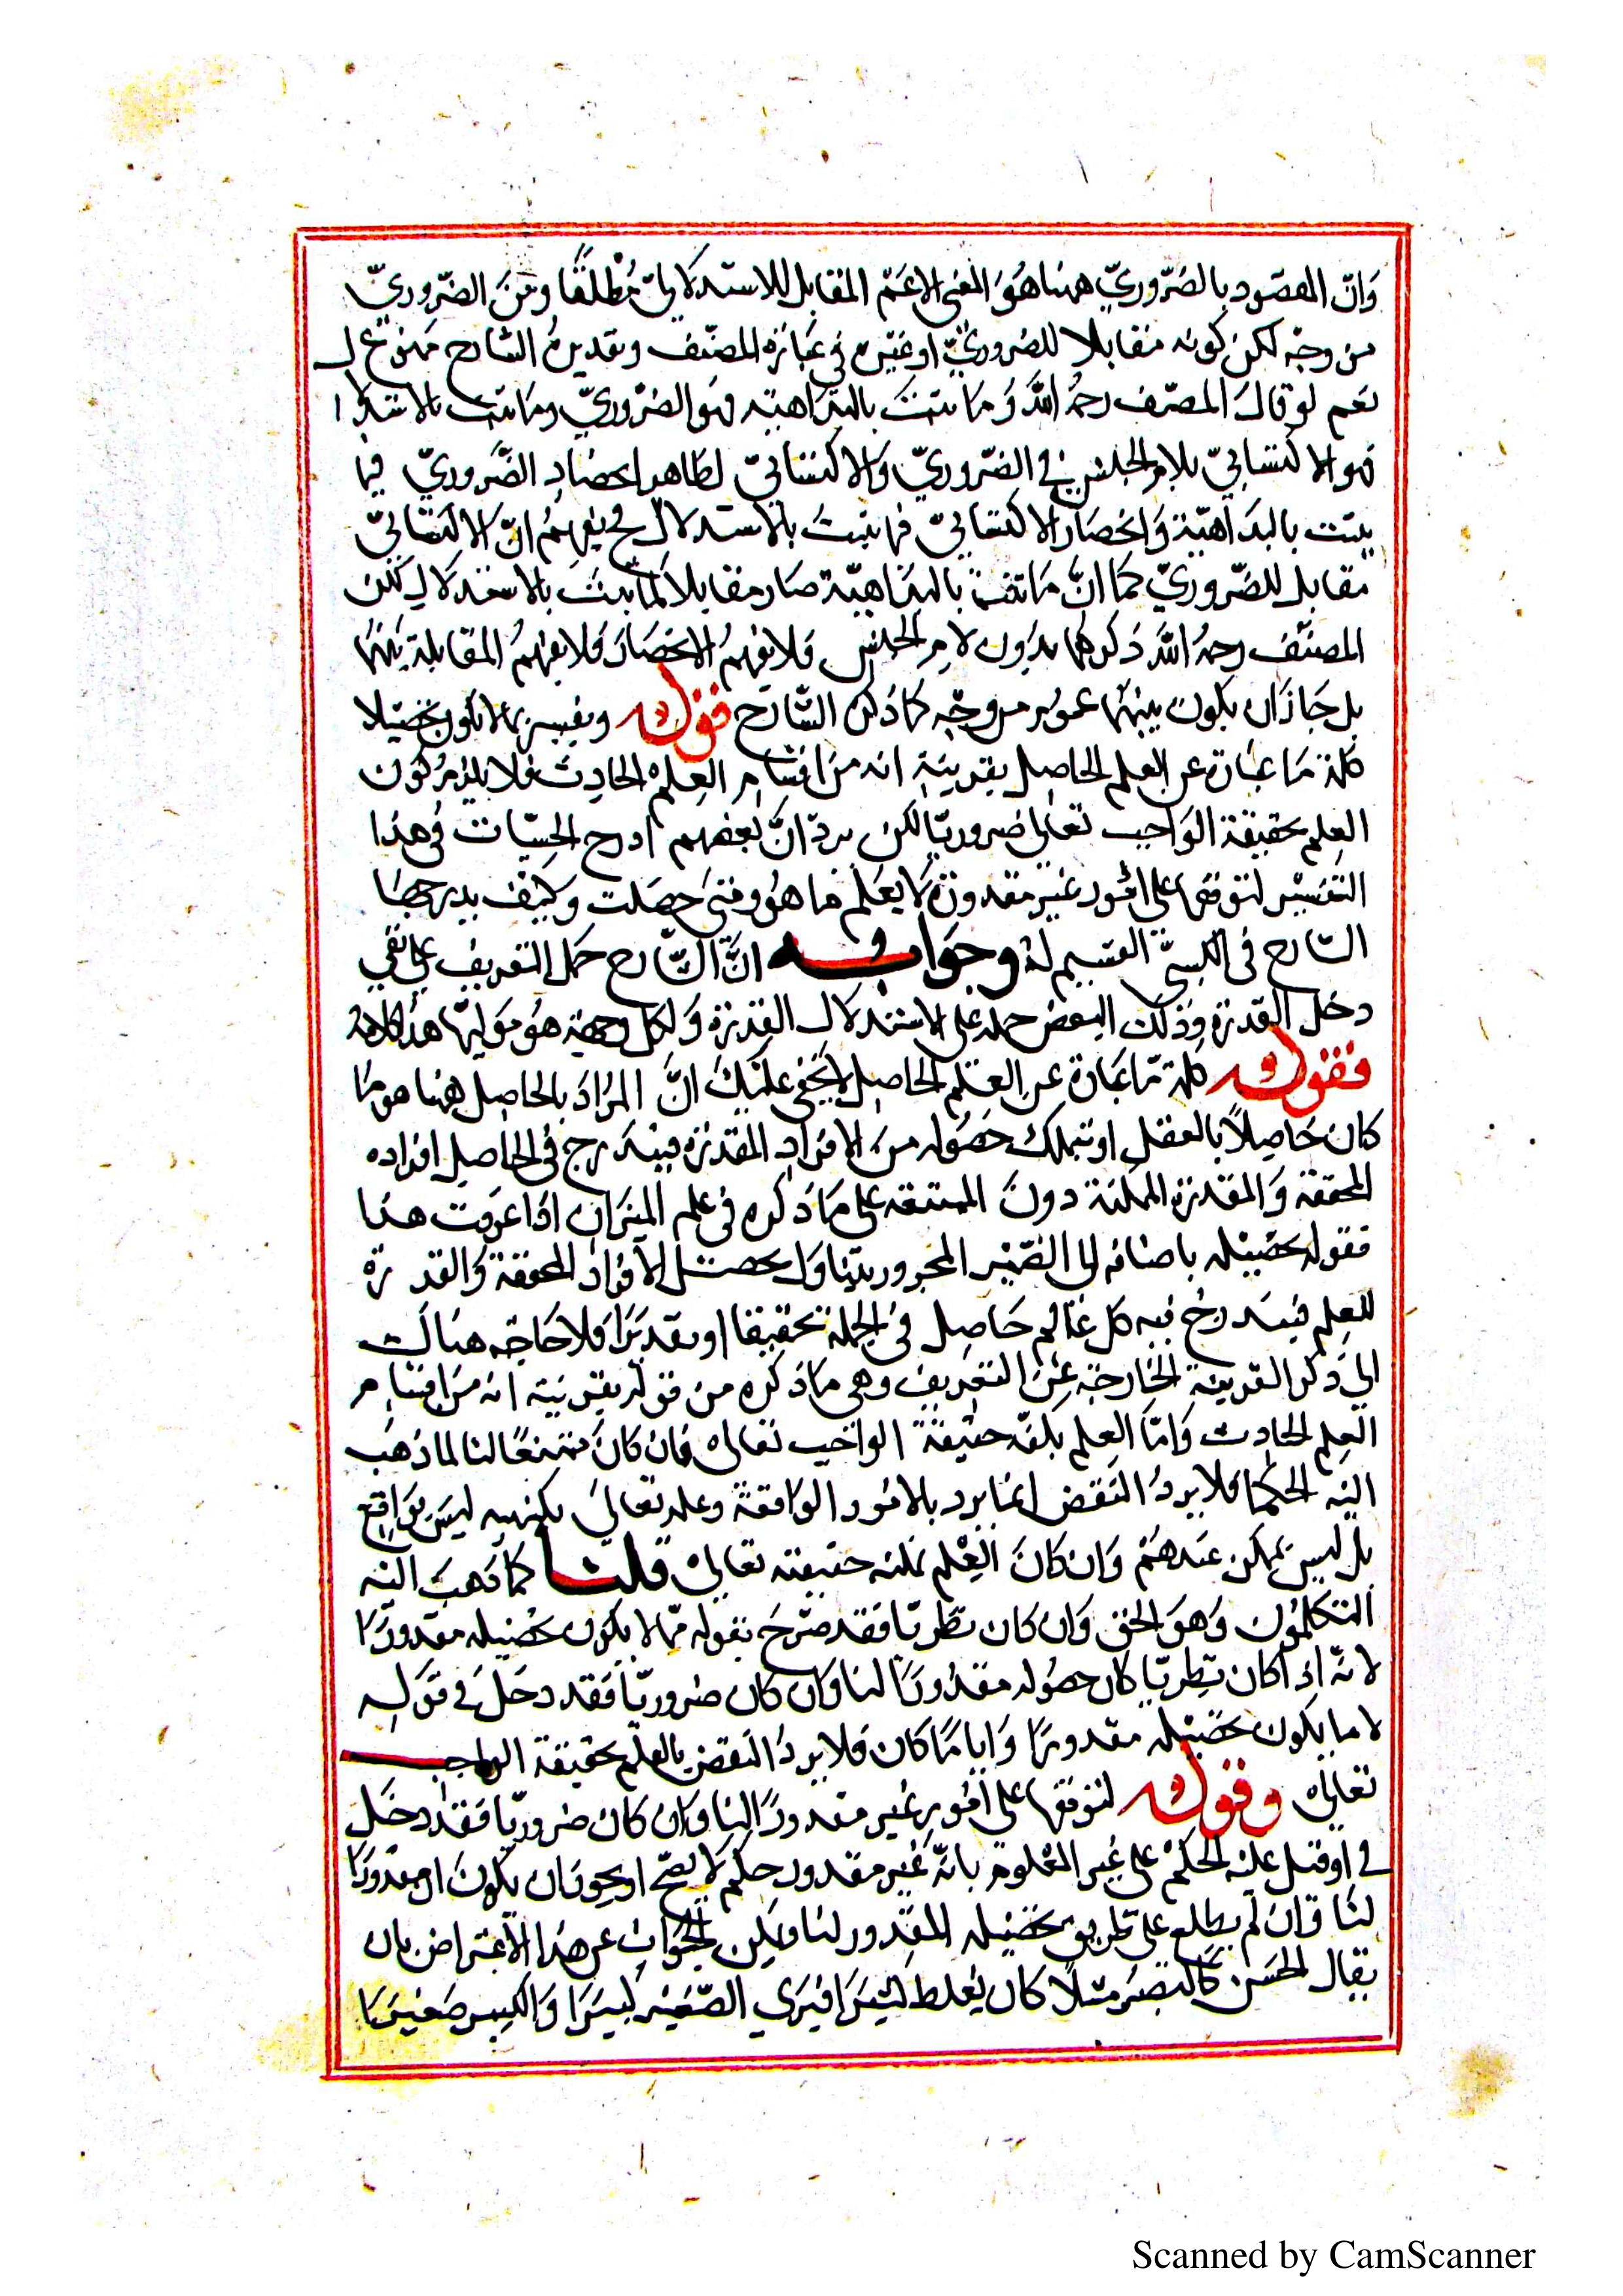 وَانّ المقصود بالضّروريّ ههنا هُوَ المعنى الاعَمّ المقابل للاستدلاليّ مُطْلَقًا ومنَ الضّروريّ
من وجْه لكن كونه مقابلا للضروريّ اوغيره في عبَارة المصنّف وتقديرُ الشارح ممنوع ل
نعم لو قال المصنّف رحمهُ اللّه وَمَا يثبت بالبدَاهة فهوَ الضرُوريّ وما يثبت بالاستدلا
فهو الاكتسابيّ بلام الجنس في الضّروريّ وَالاكتسابيّ لظاهر انحصَار الضّروريّ فيما
يثبت بالبدَاهة وَانحصَار الاكتسابيّ فيما يثبتُ بالاستدلال ح يفهمُ انّ الاكتسَابيّ
مقابل للضّروريّ كمَا انَّ مَا يثبت بالبدَاهة صَار مقابلا لمَا يثبت بالاستدلال لكن
المصنّف رحمهُ اللّه ذكرهما بدُون لام الجنس فلا يفهمُ الانحصَار فلا يفهمُ المقابلة بينهما
بل جَازَ ان يكون بينهمَا عمُوم من وجْه كما ذكرَ الشّارح فقوله ويفسّر بما لا يكون تحصيله
كلمة مَا عبَارة عن العلم الحاصل بقرينة انه من اقسَام العِلم الحادِث فلا يلزمُ كون
العِلم بحقيقة الوَاجب تعَالى ضروريّا لكن يردّ انَّ بعضهم ادرج الحِسيّات في هذا
التفسيْر لتوقفها على امُور غير مقدورة لا يعلم مَا هوَ ومتى حصَلت وكيف يدرجهَا
الشارح في الكسبيّ القسيم له وجوَابه انَّ الشّارح حمَل التعريف على نفي
دخل القدرة وذلك البعض حمله على الاستقلال القدرة وَلكل وجهة هوَ موَليهَا هذا كلامهُ
فقوله كلمة مَا عبَارة عن العلم الحاصل لا يخفى عليكَ انَّ المرَادَ بالحاصل ههنا هو مَا
كان حَاصِلاً بالعقل او يملك حصُوله منَ الافراد المقدرة فيندرج في الحاصل افراده
المحققة وَالمقدرة الممكنة دونَ الممتنعة على مَا ذكره في علم الميزان اذا عرفت هذا
فقوله تحصيله باضافه الى الضّمير المجرور يتناول تحصيل الافراد المحققة وَالمقد رة
للعلم فيندرجُ فيه كل عالم حَاصِل في الجملة تحقيقا او تقديرَا فلا حَاجَة هناك
الي ذكر القرينة الخارجة عَن التعريف وهي مَا ذكره من قوله بقرينة انه من اقسَام
العِلم الحادِث وَامّا العِلم بكنه حقيقة الواجب تعالى فان كانَ ممتنعًا لنا لما ذهَب
اليْه الحكما فلا يردُ النقض انما يرد بالامُور الوَاقعة وعلمه تعَالي بكنهه ليسَ بوَاقع
بل ليس بممكن عندهمْ وَان كانَ العِلم بكنه حقيقته تعالى قلنا كمَا ذهبَ اليْه
المتكلمُون وَهوَ الحق وَان كان نظريّا فقد صَرّح بقوله مّا لا يكون تحصيله مقدورًا
لانّه اذا كان نظريّا كان حصُوله مقدُورًا لنا وَان كان ضروريّا فقد دخلَ في قوله
لا ما يكون تحصيله مقدورًا وَايا مَّا كان فلا يردُ النقض بالعلم بحقيقة الواجب
تعَالى وقوله لتوقفها على امُور غير مقدورًا لنا وَان كان ضروريّا فقد دخل
في اوقيل عليْه الحكمْ على غير المعْلوم بانّه غير مقدور حكم لا يصحّ او يجوز ان يكون امر مقدورًا
لنا وَان لم يطلع على طريق تحصيله المقدور لنا ويمكن الجوَاب عن هذا الاعتراض بان
يقال الحسَّ كالبصَر مثلاً كان يغلط كثيرَا فيرَي الصّغير كبيرَا وَالكبير صَغيرَا
Scanned by CamScanner